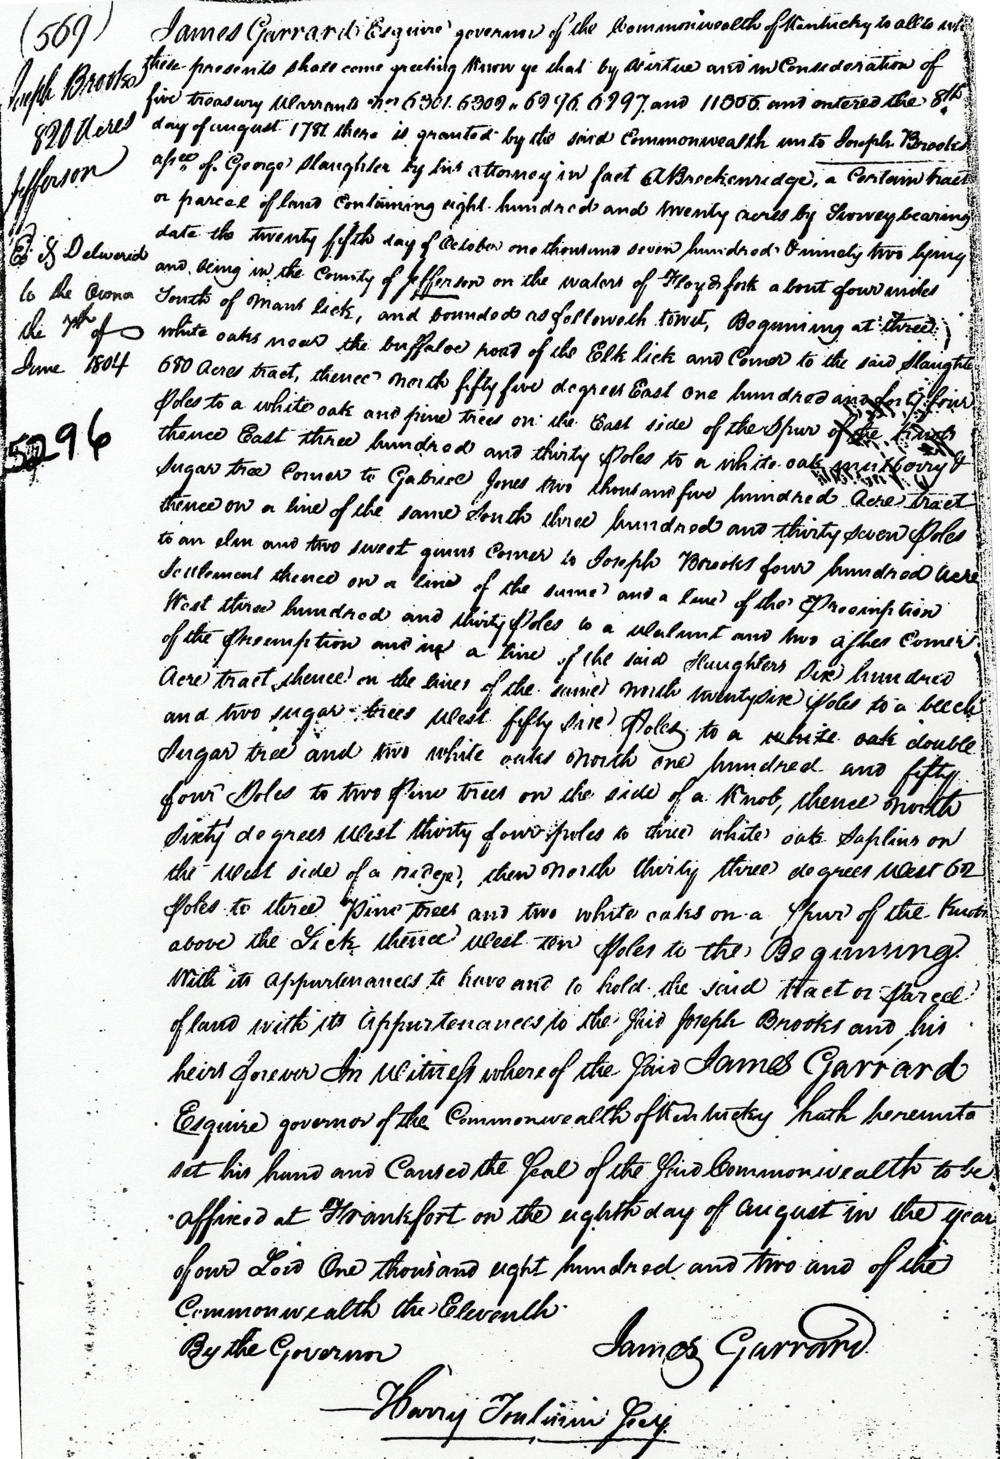 (569)
Joseph Brooks
820 Acres
Jefferson
Ex & Delivered
to the Owner
the 7th of
June 1804
5296
James Garrard Esquire governor of the Commonwealth of Kentucky to all to whom
these presents shall come greeting Know ye that by Virtue and in Consideration of
five treasury Warrants Nos 6301. 6309 6296. 6297 and 11306 and entered the 8th
day of august 1781 there is granted by the said Commonwealth unto Joseph Brooks
assee of George Slaughter by his attorney in fact A Breckenridge, a Certain tract
or parcel of land Containing eight hundred and twenty acres by Survey bearing
date the twenty fifth day of October one thousand seven hundred & ninety two lying
and being in the County of Jefferson on the waters of Floyds fork about four miles
South of Mans lick, and bounded as followeth towit, Beginning at three
white oaks near the buffaloe road of the Elk lick and Corner to the said Slaughters
680 Acres tract, thence North fifty five degrees East one hundred and forty four
Poles to a white oak and pine trees on the East side of the Spur of the Knob
thence East three hundred and thirty Poles to a white oak mulberry &
Sugar tree Corner to Gabriel Jones two thousand five hundred Acre tract
thence on a line of the same South three hundred and thirty seven Poles
to an elm and two sweet gums Corner to Joseph Brooks four hundred acre
Settlement thence on a line of the same and a line of the Preemption
West three hundred and thirty Poles to a Walnut and two ashes Corner
of the Preemption and in a line of the said Slaughters Six hundred
Acre tract thence on the lines of the same North twenty six Poles to a beech
and two sugar trees West fifty Six Poles to a white oak double
Sugar tree and two white oaks North one hundred and fifty
four Poles to two Pine trees on the side of a Knob, thence North
Sixty degrees West thirty four poles to three white oak Saplins on
the West side of a ridge, then North thirty three degrees West 62
Poles to three Pine trees and two white oaks on a Spur of the Knob
above the Lick thence West ten Poles to the Beginning.
With its appurtenances to have and to hold the said tract or Parcel
of land with its Appurtenances to the Said Joseph Brooks and his
heirs forever In Witness where of the Said James Garrard
Esquire governor of the Commonwealth of Kentucky hath hereunto
set his hand and Caused the Seal of the Said Commonwealth to be
affixed at Frankfort on the eighth day of august in the year
of our Lord One thousand eight hundred and two and of the
Commonwealth the Eleventh
By the Governor
James Garrard
Harry Toulmin Secy.